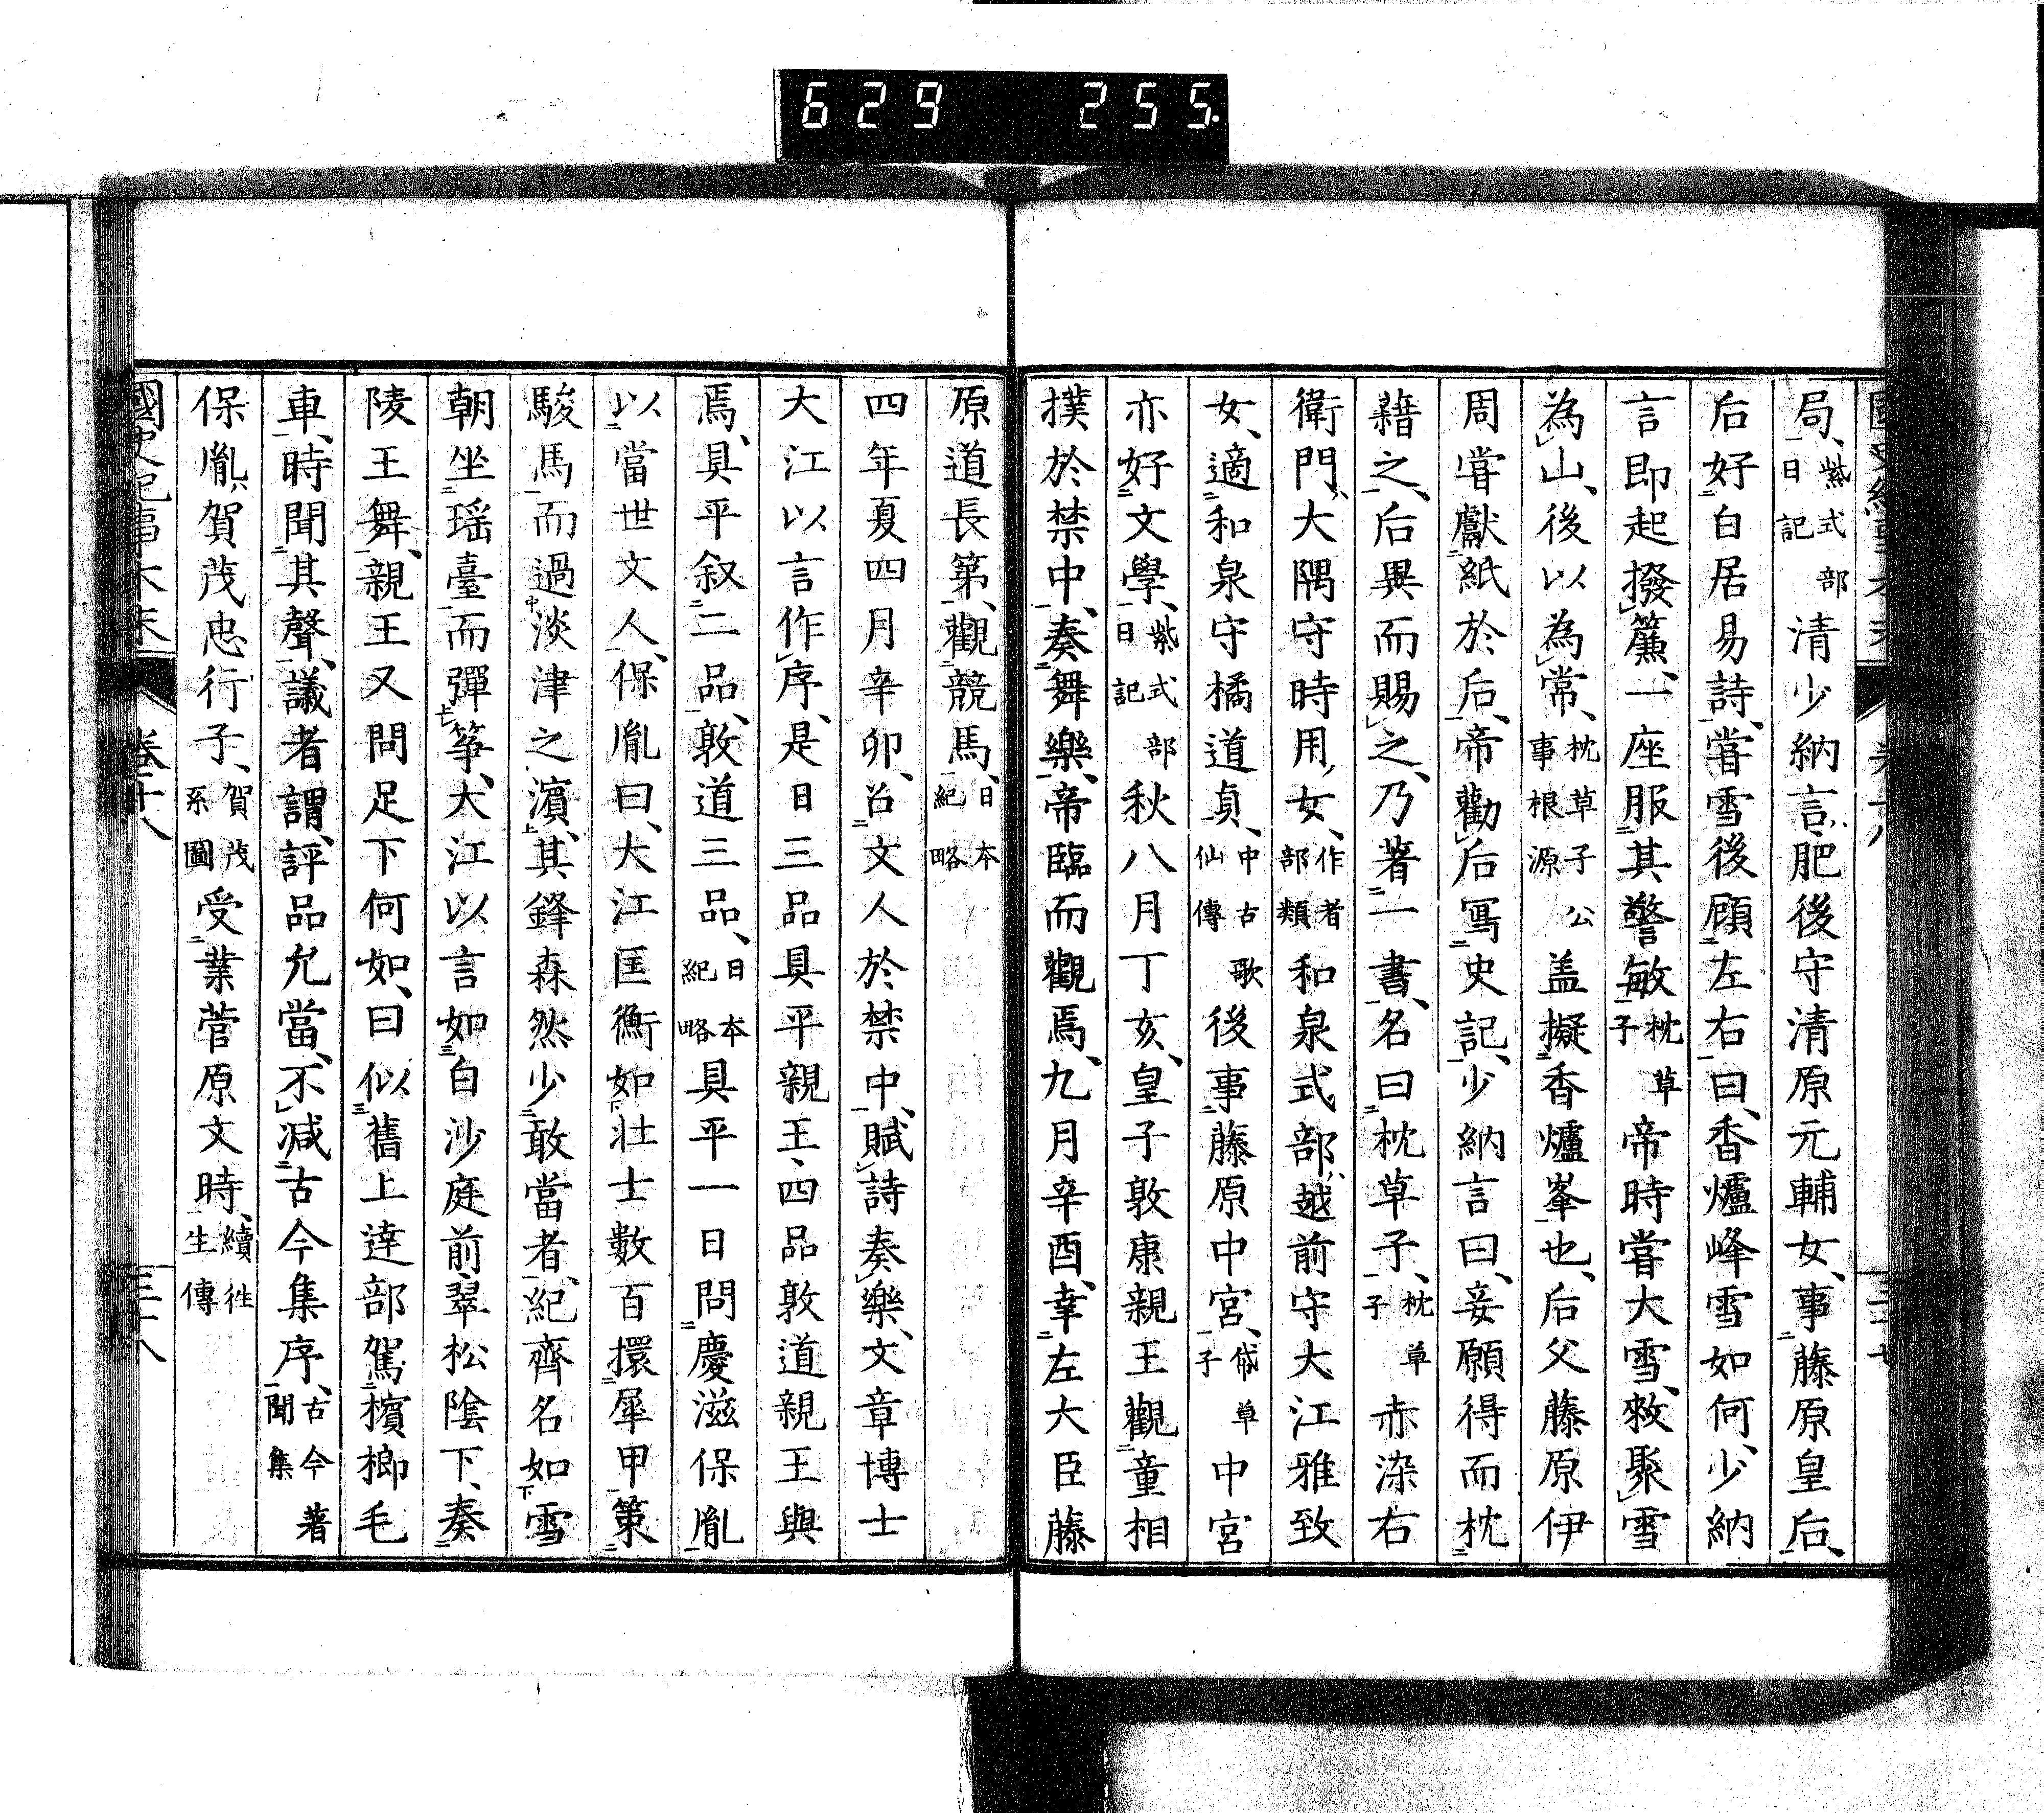 629 255.
局、紫式部日記清少納言、肥後守清原元輔女、事藤原皇后、
后好白居易詩、嘗雪後顧左右曰、香爐峰雪如何、少納
言即起撥簾、一座服其警敏枕草子帝時嘗大雪、敕聚雪
為山、後以為常、枕草子公事根源盖擬香爐峯也、后父藤原伊
周嘗獻紙於后、帝勸后寫史記、少納言曰、妾願得而枕
藉之、后異而賜之、乃著一書、名曰枕草子、枕草子赤染右
衛門、大隅守時用女、作者部類和泉式部、越前守大江雅致
女、適和泉守橘道貞、中古歌仙傳後事藤原中宮、帋草子中宮
亦好文學、紫式部日記秋八月丁亥、皇子敦康親王觀童相
撲於禁中、奏舞樂、帝臨而觀焉、九月辛酉、幸左大臣藤
原道長第、觀競馬、日本紀略
四年夏四月辛卯、召文人於禁中、賦詩奏樂、文章博士
大江以言作序、是日三品具平親王、四品敦道親王與
焉、具平叙二品、敦道三品、日本紀略具平一日問慶滋保胤
以當世文人、保胤曰、大江匡衡如壯士數百擐犀甲策
駿馬而過淡津之濵、其鋒森然少敢當者、紀齊名如雪
朝坐瑶臺而彈筝、大江以言如白沙庭前、翠松陰下、奏
陵王舞、親王又問足下何如、曰似舊上逹部駕檳榔毛
車、時聞其聲、議者謂、評品允當、不減古今集序、古今著聞集
保胤、賀茂忠行子、賀茂系圖受業菅原文時、續往生傳
國史紀事本末 卷十八 三十八